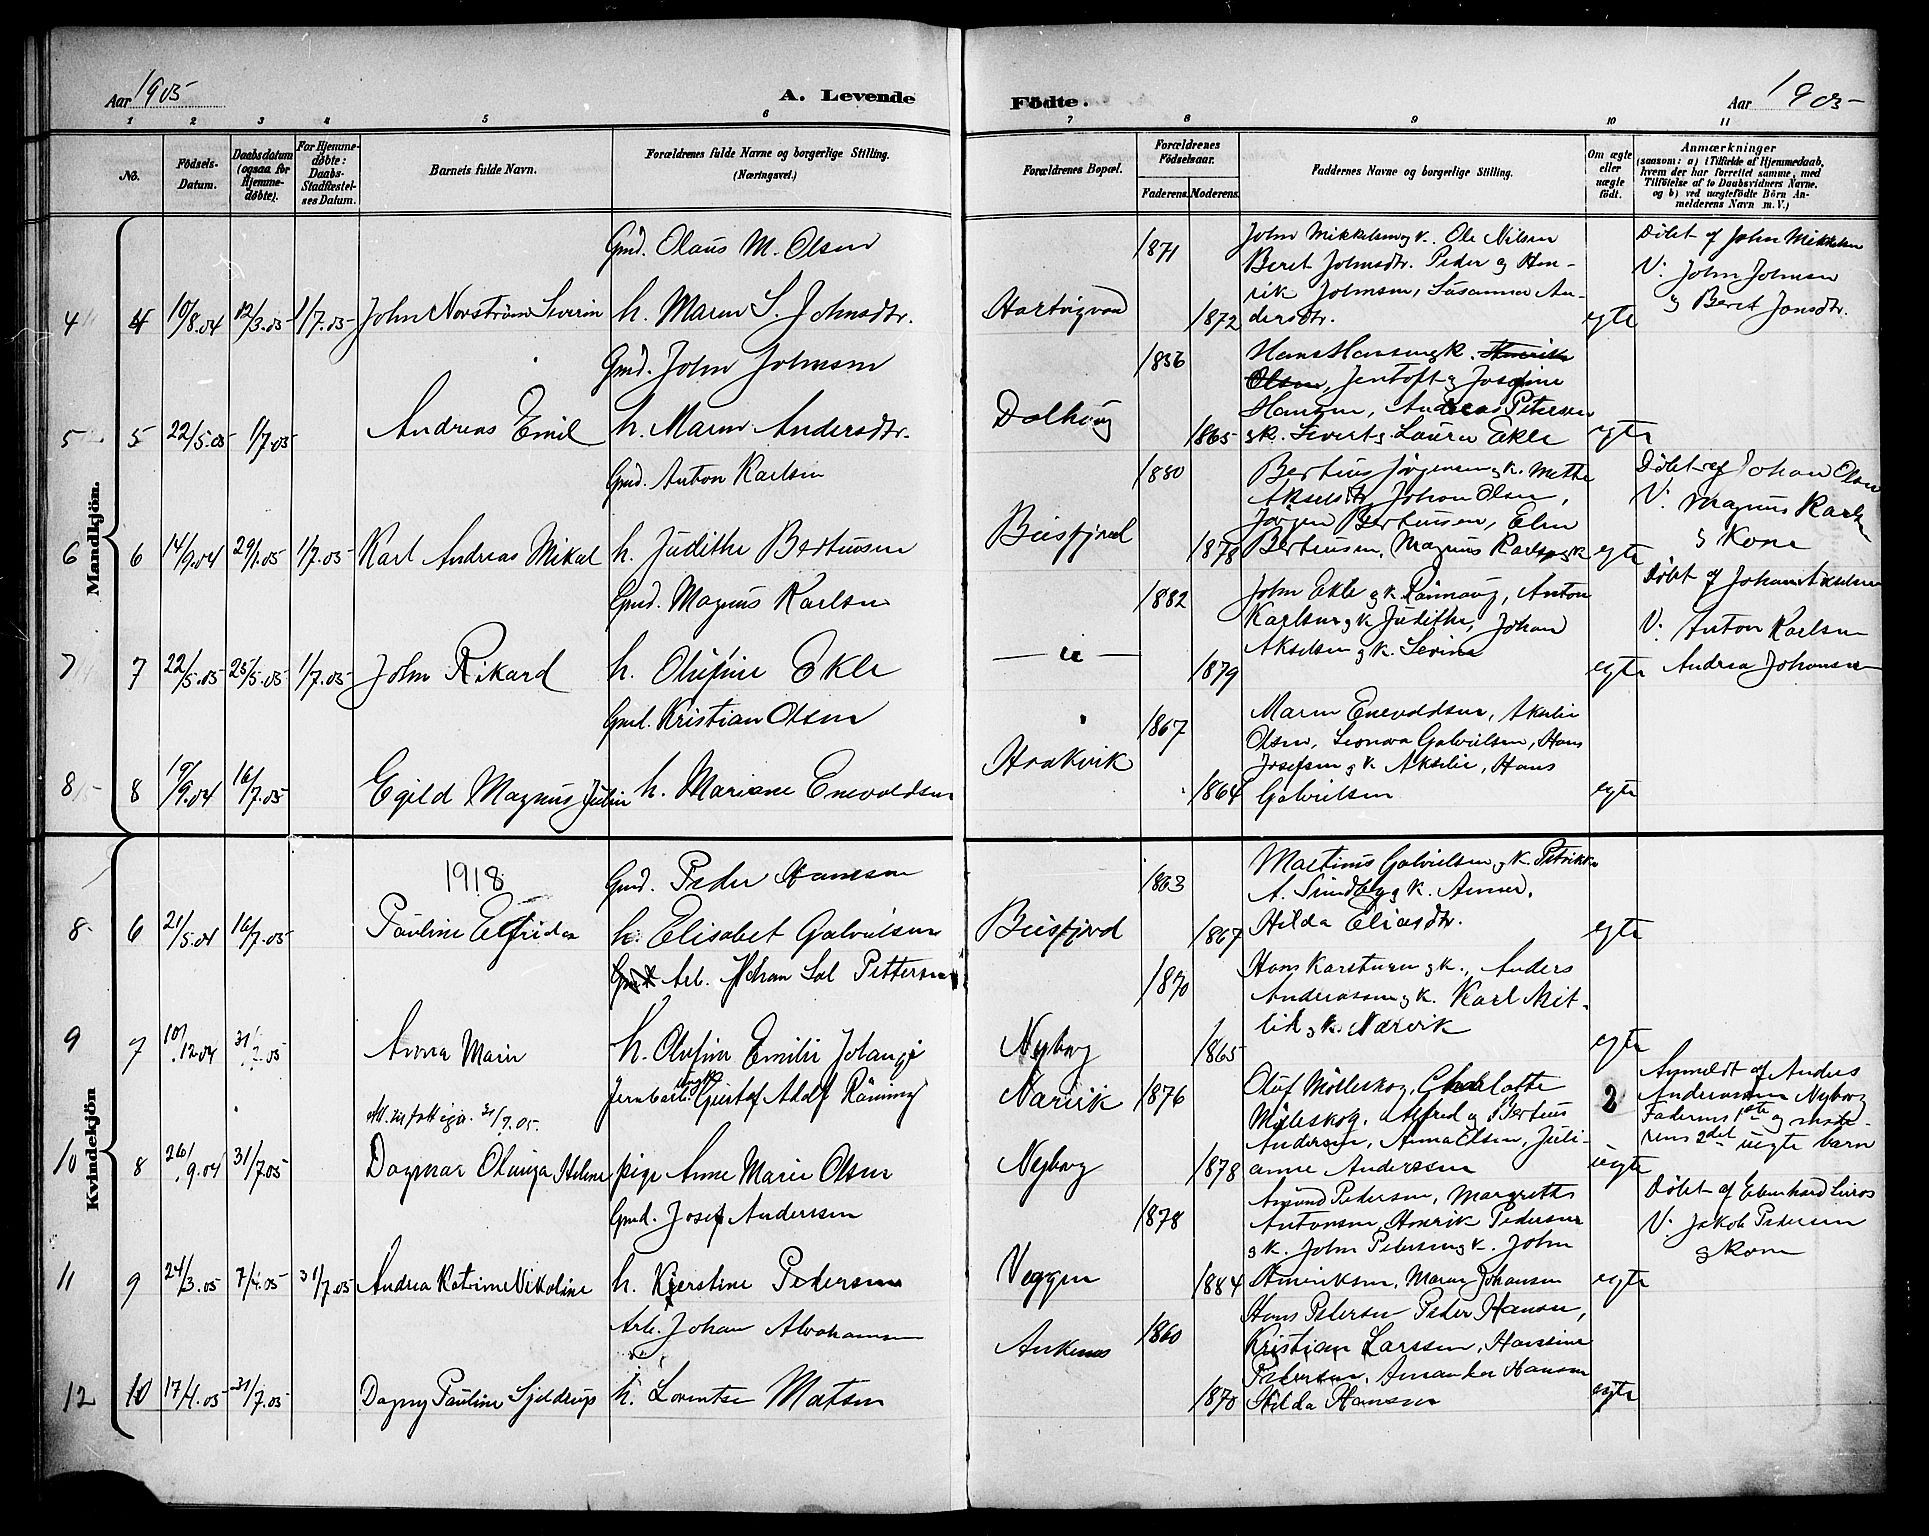 Aar 1905
A. Levende
Födte.
Aar 1905
1 2 3 4 5 6 7 8 9 10 11
No.
Födsels-
Datum.
Daabsdatum
(ogsaa for
Hjemme-
döbte).
For Hjemme-
döbte:
Daabs-
Stadfæstel-
ses Datum.
Barnets fulde Navn.
Forældrenes fulde Navne og borgerlige Stilling.
(Næringsvei.)
Forældrenes Bopæl.
Forældrenes
Födselsaar.
Faderens. Moderens.
Faddernes Navne og borgerlige Stilling.
Om ægte
eller
uægte
födt.
Anmærkninger
(saasom: a) i Tilfælde af Hjemmedaab,
hvem der har forrettet samme, med
Tilföielse af to Daabsvidners Navne,
og b) ved uægtefödte Börn An-
melderens Navn m. V.)
Mandkjön.
4 4 10/8.04 12/3.05 1/7.05 John Norström Severin
Gmd. Olaus M. Olsen
h. Maren S. Johnsdtr.
Hartvigvad
1871
1872
John Mikkelsen og k. Ole Nilsen
Beret Johnsdtr. Peder og Hen-
rik Johnsen, Susanna An-
dersdtr.
egte
Döbt af John Mikkelsen
V. John Johnsen
og Beret Jonsdtr.
5 5 22/5.05 1/7.05 Andreas Emil
Gmd. John Johnsen
h. Maren Andersdtr.
Dalhaug
1856
1865
Hans Hansen og k. Henrik
Olsen, Jentoft og Josefine
Hansen, Andreas Petersen
og k. Sivert og Laura Ekle
egte
6 6 14/9.04 29/1.05 1/7.05 Karl Andreas Mikal
Gmd. Anton Karlsen
h. Judithe Berteusen
Beisfjord
1880
1878
Berteus Jörgensen og k. Mette
Akselsdtr. Johan Olsen,
Jörgen Berteussen, Elen
Berteusen, Magnus Karlsen og k
egte
Döbt af Johan Olsen
V. Magnus Karlsen
og Kone
7 7 22/5.05 25/5.05 1/7.05 John Rikard
Gmd. Magnus Karlsen
h. Olufine Ekle
1882
1879
John Ekle og k. Rönnaug, Anton
Karlsen og k Judithe, Johan
Akselsen og k. Sevine
egte
Döbt af Johan Akselsen
V. Anton Karlsen
Andrea Johansen
8 8 19/9.04 16/7.05 Egild Magnus Julin
Gmd. Kristian Olsen
h. Mariane Enevoldsen
Haakvik
1867
1864
Maren Enevoldsen, Akselie
Olsen, Leonora Gabrielsen, Hans
Josefsen og k Akselie, Hans
Gabrielsen
egte
Kvindekjön
1918
8 6 21/5.04 16/7.05 Pauline Elfrida
Gmd. Peder Hansen
h. Elisabet Gabrielsen
Beisfjord
1863
1867
Martinus Gabrielsen og k. Petrikke
A. Sundby og k. Anna.
Hilda Eliasdtr.
egte
9 7 10/12 04 31/7.05 Anna Marie
Gmd. Arb. Johan Sal Pettersen
h. Olufine Emilie Jolangi
Nyborg
1870
1865
Hans Karstensen og k., Anders
Anderassen og k. Karl Mit-
lid og k. Narvik
egte
Att. utfattiger. 31/7.05.
10 8 26/9.04 31/7.05 Dagmar Olauga Helene
Jernbarb. ungk. Gustaf Adolf Rönning
pige Anne Marie Olsen
Narvik
Nyborg
1876
1878
Oluf Mölleskog, Charlotte
Mölleskog, Alfred og Berteus
Andersen, Anna Olsen, Juli-
anne Anderssen
2
uegte
Anmeldt af Anders
Andersen Nyborg
Faderens 1ste og mode-
rens 2det uegte barn
11 9 24/3.05 7/4.05 31/7.05 Andrea Katrine Nikoline
Gmd. Josef Anderssen
h. Kjerstine Pedersen
Veggen
1878
1884
Amund Pedersen, Margrethe
Antonsen, Henrik Pedersen
og k. John Petersen og k. John
Henriksen, Maren Johansen
egte
Döbt af Eberhard Liiros
V. Jakob Pedersen
og kone
12 10 17/4.05 31/7.05 Dagny Pauline Sjeldrup
Arb. Johan Abrahamsen
h. Lorentse Matsen
Ankenes
1860
1870
Hans Petersen Peder Hansen,
Kristian Larssen, Hansine
Pedersen, Amanda Hansen
Hilda Hanssen
egte